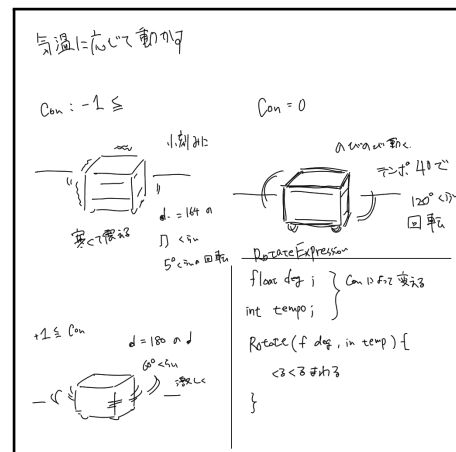 気温に応じて動かす
Con : -1 ≦
小刻みに
d = 164 の
♫ くらい
5°くらいの回転
寒くて震える
Con = 0
のびのび動く
テンポ 40で
120°くらい
回転
+1 ≦ Con
d = 180 の d
60°くらい
激しく
RotateExpression
float deg ;
int tempo ;
Conによって変える
Rotate (f deg, in temp) {
くるくるまわる
}